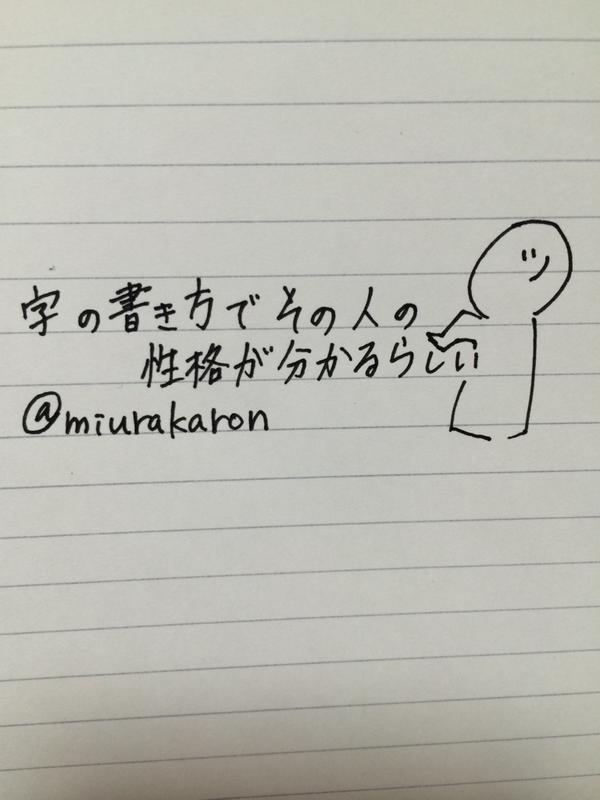 字の書き方でその人の
性格が分かるらしい
@miurakaron